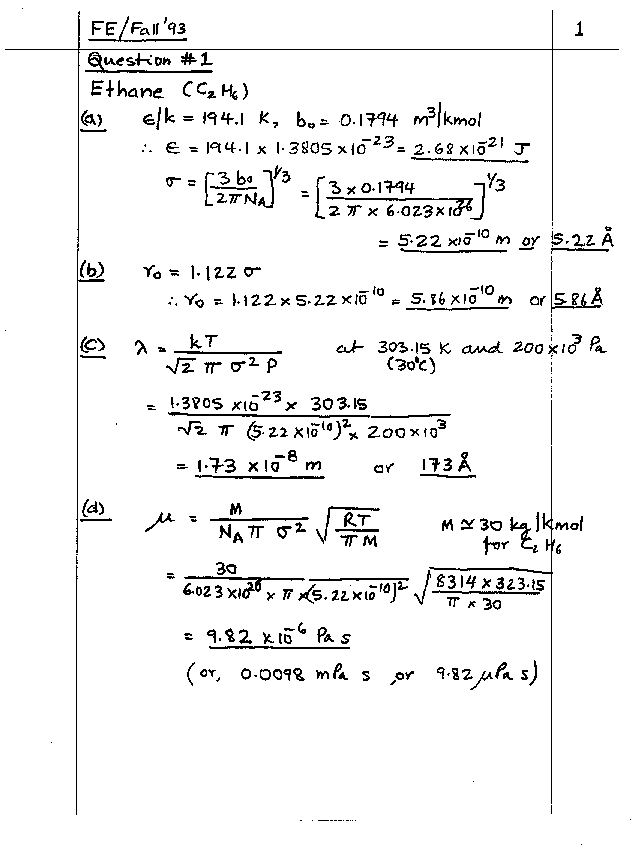 FE/Fall '93 1
Question #1
Ethane (C₂H₆)
(a) ϵ/k = 194.1 K, b₀ = 0.1794 m³/kmol
∴ ϵ = 194.1 x 1.3805 x 10⁻²³ = 2.68 x 10⁻²¹ J
σ = [3 b₀ / 2 π N_A]^1/3 = [3 x 0.1794 / 2 π x 6.023 x 10²⁶]^1/3
= 5.22 x 10⁻¹⁰ m or 5.22 Å
(b) r₀ = 1.122 σ
∴ r₀ = 1.122 x 5.22 x 10⁻¹⁰ = 5.86 x 10⁻¹⁰ m or 5.86 Å
(c) λ = kT / √2 π σ² P at 303.15 K and 200 x 10³ Pa
(30°C)
= 1.3805 x 10⁻²³ x 303.15 / √2 π (5.22 x 10⁻¹⁰)² x 200 x 10³
= 1.73 x 10⁻⁸ m or 173 Å
(d) μ = M / N_A π σ² √(RT / π M) M ≃ 30 kg/kmol
for C₂H₆
= 30 / 6.023 x 10²⁶ x π x (5.22 x 10⁻¹⁰)² √(8314 x 323.15 / π x 30)
= 9.82 x 10⁻⁶ Pa s
(or, 0.0098 mPa s, or 9.82 μPa s)